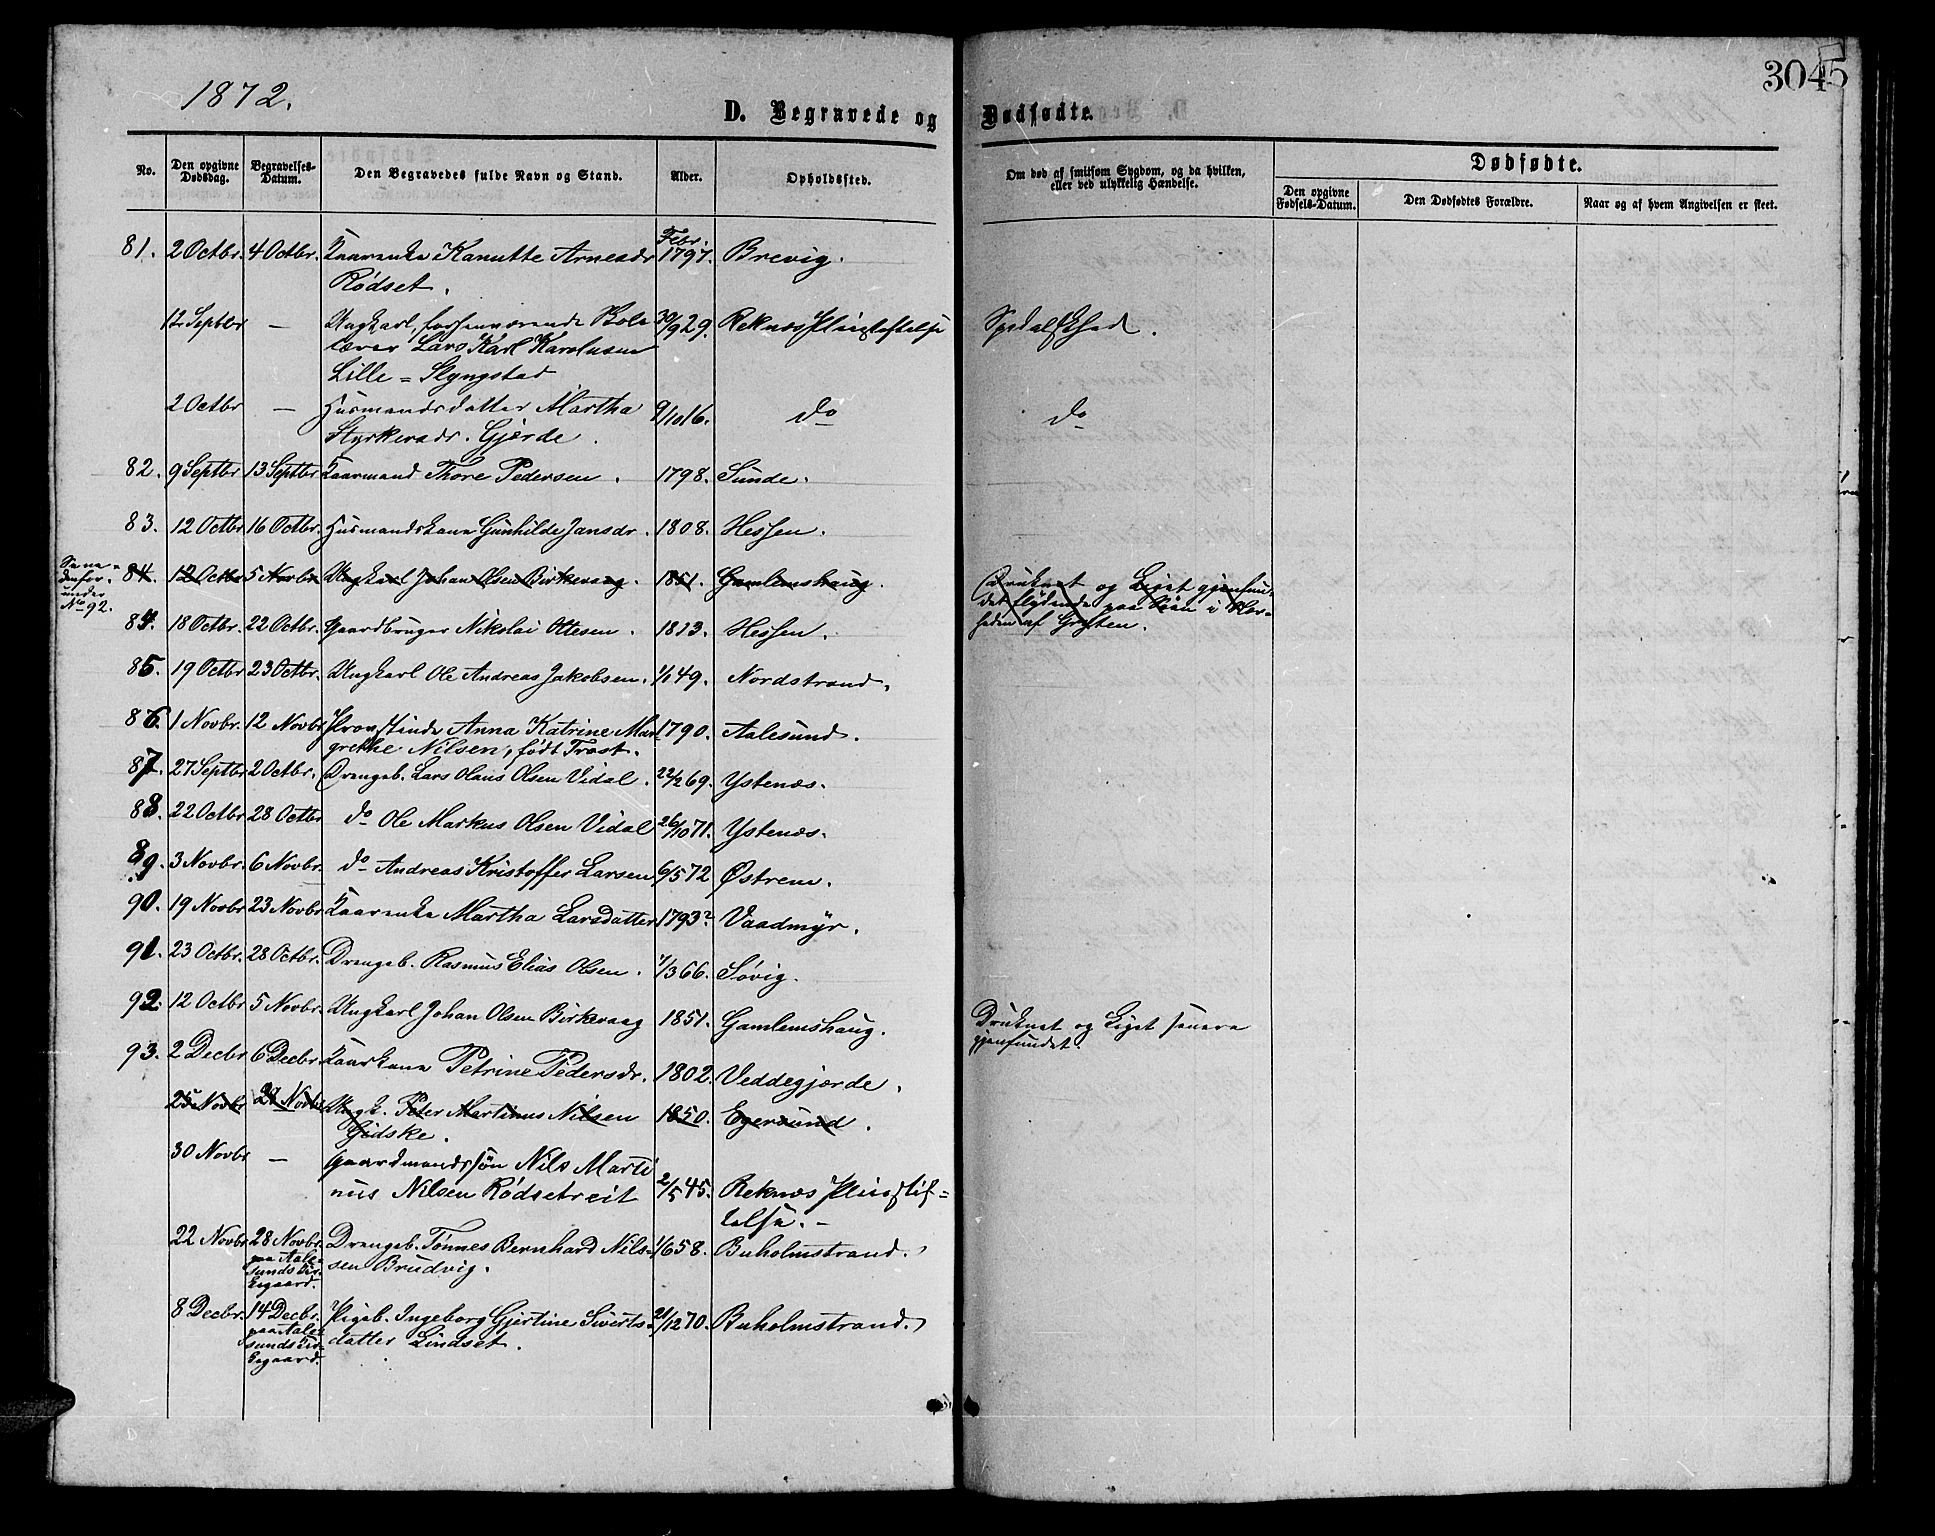 1872.
3045
D. Begravede og Dødfødte.
No. Den opgivne Dødsdag. Begravelses-Datum. Den Begravedes fulde Navn og Stand. Alder. Opholdssted. Om død af smitsom Sygdom, og da hvilken, eller ved ulykkelig Hændelse.
Dødfødte.
Den opgivne Fødsels-Datum. Den Dødfødtes Forældre. Naar og af hvem Angivelsen er skeet.
81. 2 Octbr. 4 Octbr. Kaarenke Kanutte Arnesdr Febr. 1797. Brevig.
Rødset.
12 Septbr — Ungkarl, forhenværende Skole 30/9 29. Reknæs Pleiestiftelse Spedalskhed.
lærer Lars Karl Karolusen
Lille = Slyngstad
2 Octbr — Husmandsdatter Martha 9/10 16. do do
Styrkersdr. Gjerde.
82. 9 Septbr 13 Septbr Kaarmand Thore Pedersen. 1798. Sunde.
83. 12 Octbr 16 Octbr. Husmandskone Gunhilde Jansdr. 1808. Hessen.
84. 12 Octbr 5 Novbr. Ungkarl Johan Olsen Birkevaag. 1851. Gamlemshaug. Druknet og Liget gjenfun-
det flydende paa Søen i Nær-
heden af Grytten.
under
No 92.
84. 18 Octbr. 22 Octbr. Gaardbruger Nikolai Ottesen. 1813. Hessen.
85. 19 Octbr 23 Octbr. Ungkarl Ole Andreas Jakobsen. 1/1 49. Nordstrand.
86. 1 Novbr. 12 Novbr Provstinde Anna Katrine Mar 1790. Aalesund.
grethe Nilsen, født Trost.
87. 27 Septbr 2 Octbr. Drengeb. Lars Olaus Olsen Vidal. 22/2 69. Ystenæs.
88. 22 Octbr 28 Octbr do Ole Markus Olsen Vidal 26/10 71. Ystenæs.
89. 3 Novbr. 6 Novbr. do Andreas Kristoffer Larsen 6/5 72 Østrem.
90. 19 Novbr 23 Novbr Kaarenke Martha Larsdatter 1793? Vaadmyr.
91. 23 Octbr. 28 Octbr. Drengeb. Rasmus Elias Olsen. 1/3 66. Søvig.
92. 12 Octbr 5 Novbr. Ungkarl Johan Olsen Birkevaag 1851. Gamlemshaug. Druknet og Liget senere
gjenfundet.
93. 2 Decbr 6 Decbr. Kaarkone Petrine Pedersdr. 1802. Veddegjerde.
25 Novbr 29 Novbr Ungk. Peter Martinus Nilsen 1850. Egersund.
Gidske.
30 Novbr — Gaardmandssøn Nils Marti
nus Nilsen Rødsetreit 2/5 45. Reknæs Pleiestif=
telse. –
22 Novbr 28 Novbr. Drengeb. Tønnes Bernhard Nils- 1/6 58. Buholmstrand.
paa Aale- sen Brudvig.
sunds Kir-
kegaard.
8 Decbr. 14 Decbr. Pigeb. Ingeborg Gjertine Siverts- 21/12 70. Buholmstrand.
paa Aale- datter Lindset.
sunds Kir-
kegaard.